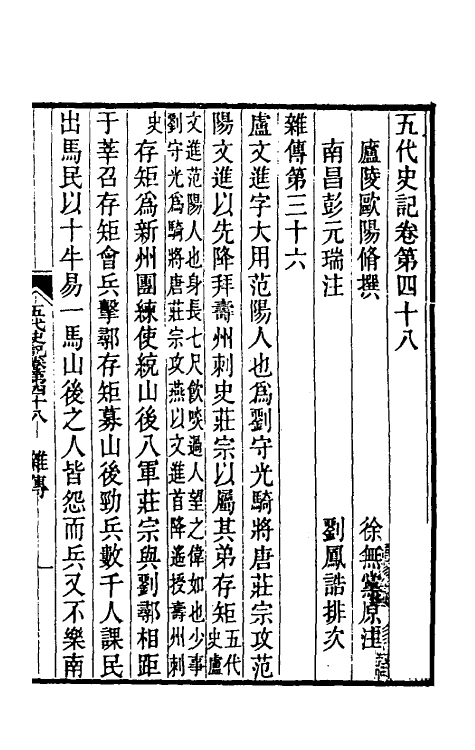 五代史記卷第四十八
廬陵歐陽脩撰　徐無黨原注
南昌彭元瑞注　劉鳳誥排次
雜傳第三十六
盧文進字大用范陽人也為劉守光騎將唐莊宗攻范
陽文進以先降拜壽州刺史莊宗以屬其弟存矩五代史盧
文進范陽人也身長七尺飲啖過人望之偉如也少事
劉守光為騎將唐莊宗攻燕以文進首降遙授壽州刺
史存矩為新州團練使統山後八軍莊宗與劉鄩相距
于莘召存矩會兵擊鄩存矩募山後勁兵數千人課民
出馬民以十牛易一馬山後之人皆怨而兵又不樂南
五代史記卷第四十八　雜傳　一